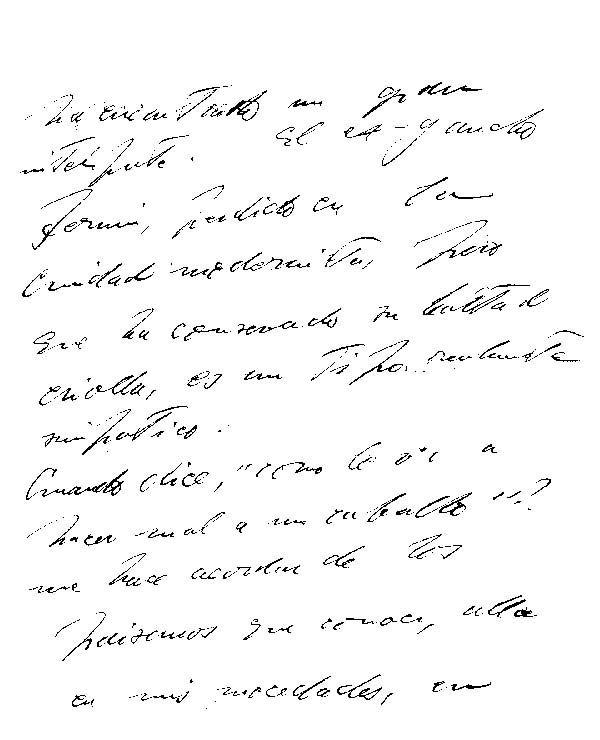 ha encontrado un gran
intérprete. El ex-gaucho
Fermin, perdido en la
ciudad modernista, pero
que ha conservado su lealtad
criolla, es un tipo realmente
simpatico.
Cuando dice, "como le va a
hacer mal a un caballo"?
me hace acordar de los
paisanos que conoci, alla
en mis mocedades, en